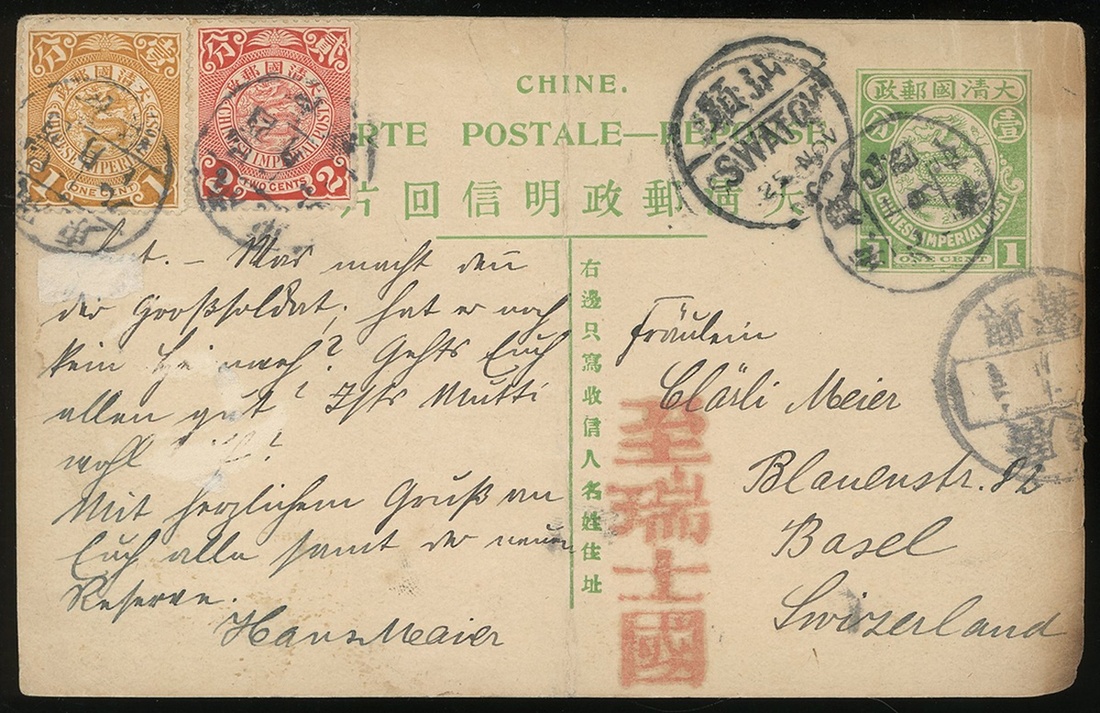 CHINE.
CARTE POSTALE—REPONSE
大清郵政明信回片
分 貳
大清國郵政
CHINESE IMPERIAL POST
1 ONE CENT 1
分 貳
大清國郵政
CHINESE IMPERIAL POST
2 TWO CENTS 2
汕頭
SWATOW
25 NOV
大清國郵政
壹 分
CHINESE IMPERIAL POST
1 ONE CENT 1
右邊只寫收信人名姓住址
至瑞士國
Was macht denn
der Großsoldat, hat er noch
kein Heimweh? Gehts Euch
allen gut? Ists Mutti
wohl
Mit herzlichem Gruß an
Euch alle samt der neuen
Reserve.
Hans Meier
Fräulein
Clärli Meier
Blauenstr. 82
Basel
Swizerland